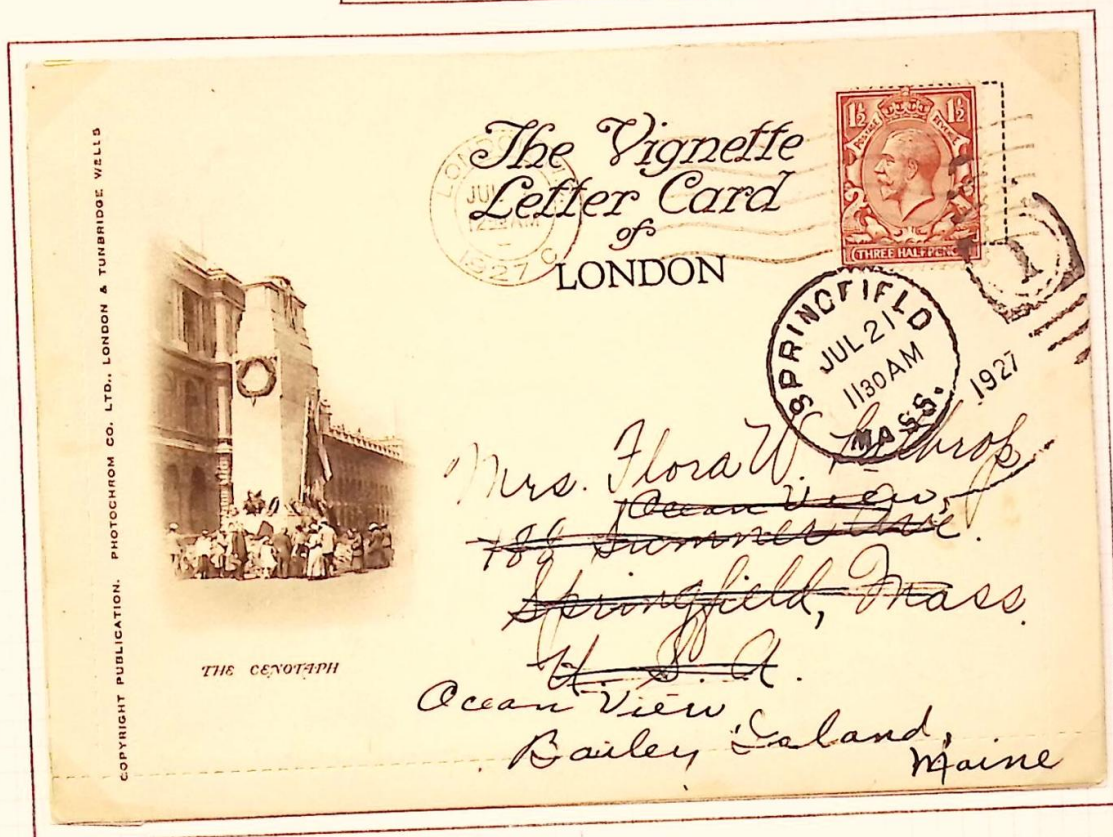 COPYRIGHT PUBLICATION. PHOTOCHROM CO. LTD., LONDON & TUNBRIDGE WELLS
The Vignette
Letter Card
of
LONDON
LONDON
JUL
1927
1½ 1½
POSTAGE REVENUE
THREE HALFPENCE
SPRINGFIELD
JUL 21
1130 AM
MASS.
1927
1
Mrs. Flora W. Lathrop
Ocean View,
188 Summer Ave.
Springfield, Mass.
U. S. A.
Ocean View,
Bailey Island,
Maine
THE CENOTAPH